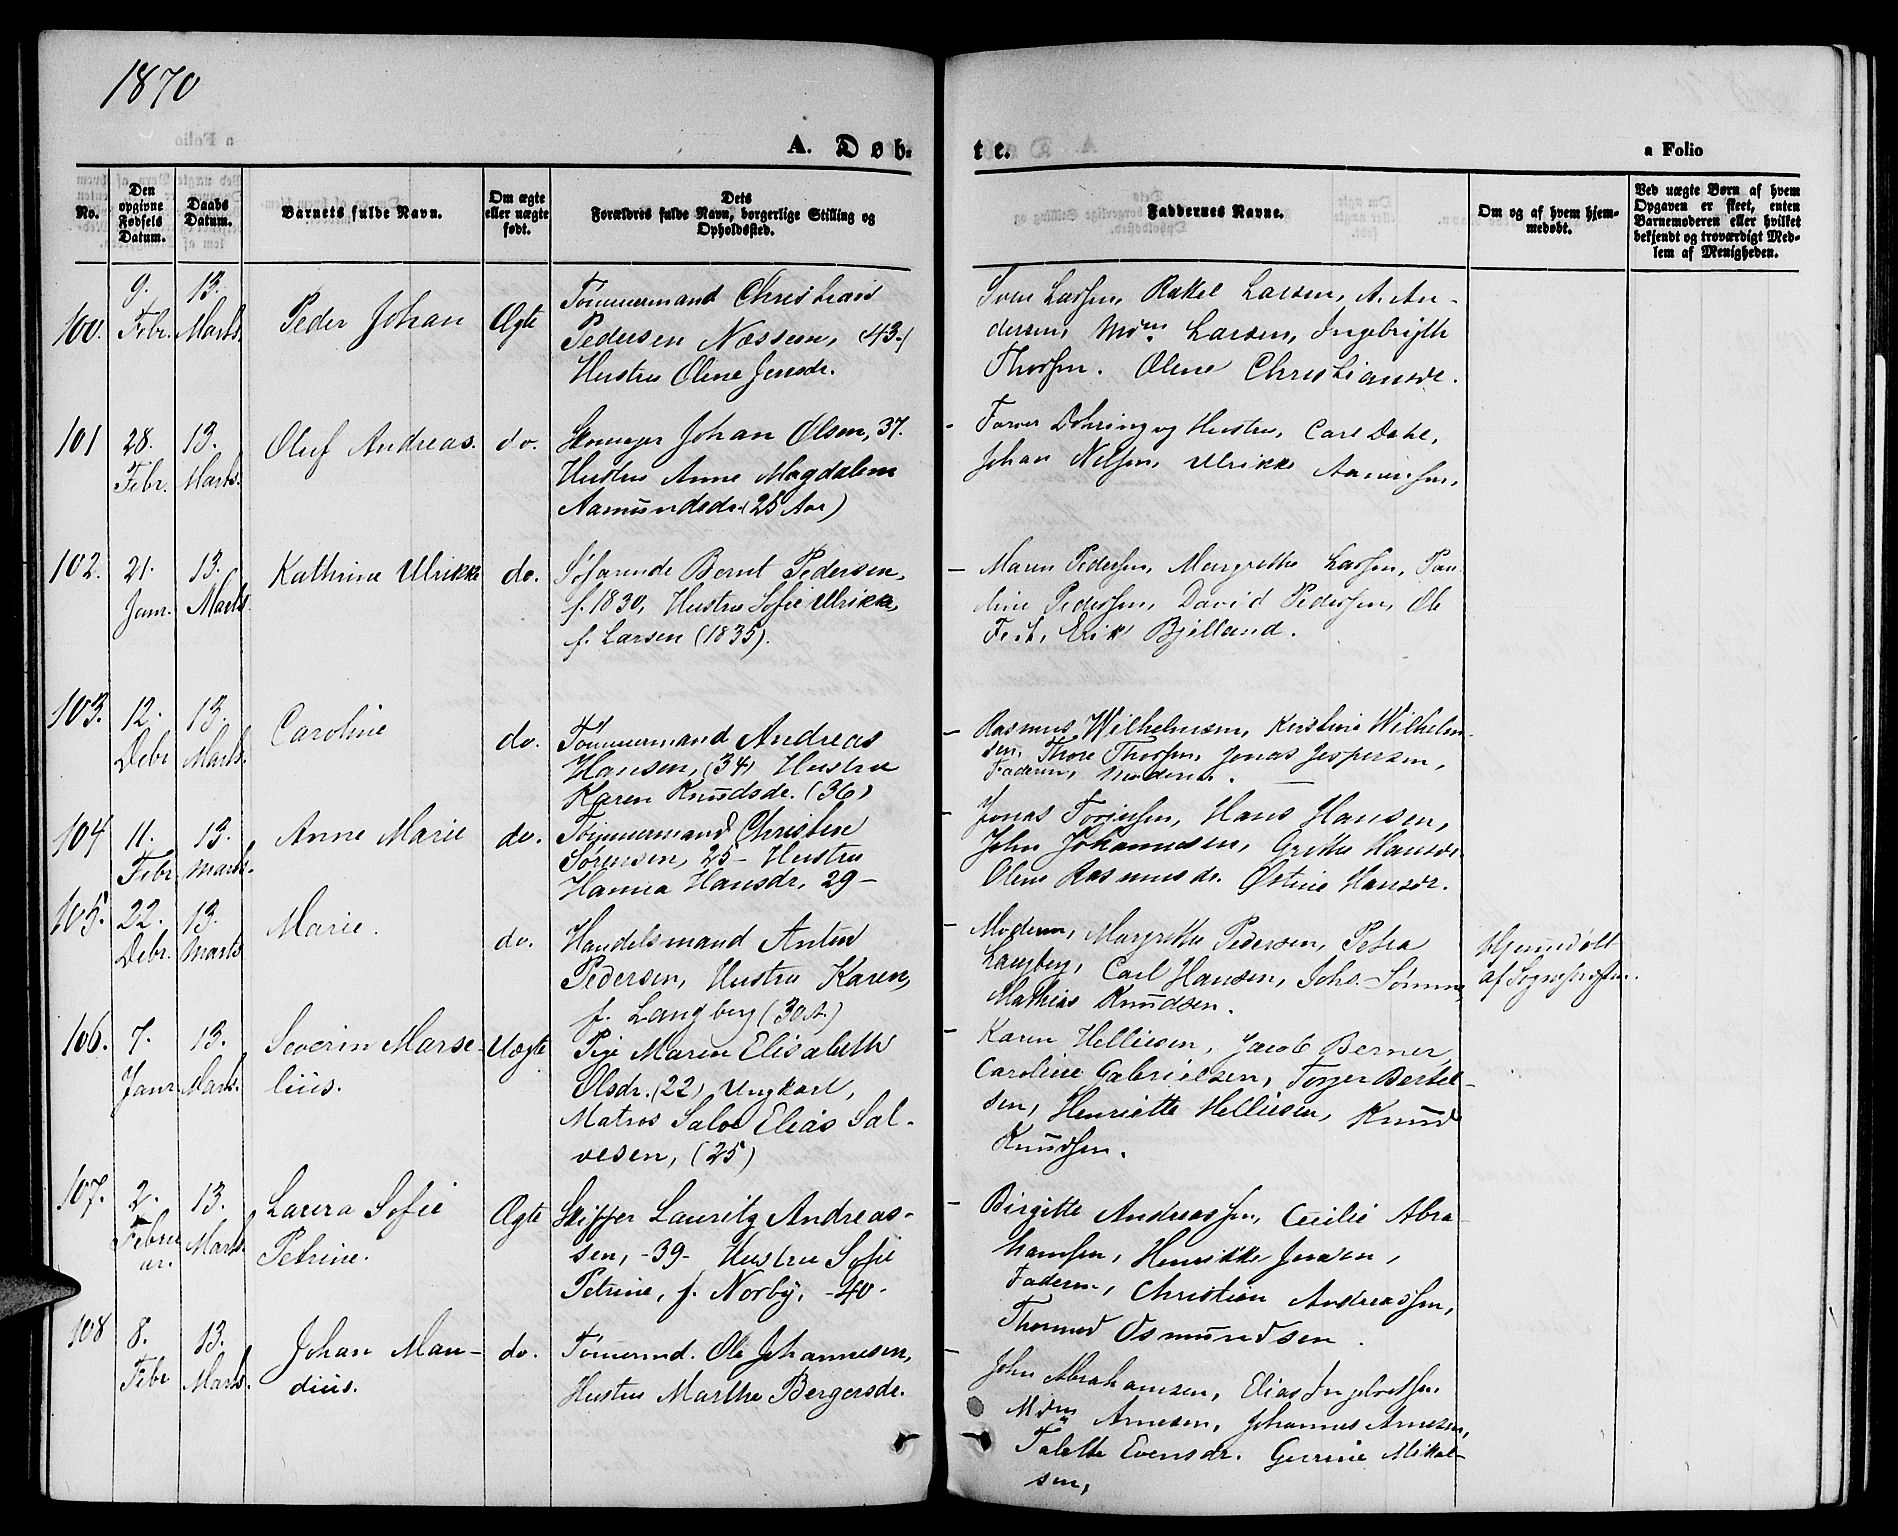 1870
A. Døb-
te.
a Folio
No.
Den opgivne Fødsels Datum.
Daabs Datum.
Barnets fulde Navn.
Om ægte eller uægte født.
Dets Forældres fulde Navn, borgerlige Stilling og Opholdssted.
Faddernes Navne.
Om og af hvem hjemmedøbt.
Ved uægte Børn af hvem Opgaven er skeet, enten Barnemoderen eller hvilket bekjendt og troværdigt Medlem af Menigheden.
100. 9. Febr. 13. Marts. Peder Johan Ægte
Tømmermand Christian
Pedersen Næssem, (43.)
Hustru Olene Jensdr.
Sven Larsen, Rakel Larsen, A. An-
dersen, Mdm. Larsen, Ingebrigth
Thorsen. Olene Christiansdr.
101 28. Febr. 13. Marts. Oluf Andreas. do.
Skomager Johan Olsen, 37.
Hustru Anne Magdalene
Aamundsdr. (25 Aar)
- Farver Døhring og Hustru, Carl Dahl,
Johan Nilsen, Ulrikke
102. 21. Janr. 13. Marts. Kathrine Ulrikke do.
Søfarende Bernt Pedersen,
f. 1830, Hustru Sofie Ulrikke,
f. Larsen (1835).
- Maren Pedersen, Margrethe Larsen, Pau-
line Pedersen, David Pedersen, Ole
Erik Bjelland.
103. 12. Debr. 13. Marts. Caroline do.
Tømmermand Andreas
Hansen, (34) Hustru
Karen Knudsdr. (36)
- Rasmus Wilhelmsen, Kirstine Wilhelm-
sen, Thore Thorsen, Jonas Jespersen,
Faderen, Moderen.
104 11. Febr. 13. Marts. Anne Marie do.
Tømmermand Christen
Sørensen, 25 - Hustru
Hanna Hansdr. 29 -
- Jonas Hans Hansen,
John Johannesen, Grethe Hansdr.
Olene Rasmusdr. Østine Hansdr.
105. 22. Debr. 13. Marts Marie. do.
Handelsmand Anton
Pedersen, Hustru Karen,
f. Langberg (30 A.)
- Moderen, Margrethe Pedersen, Petra
Langberg, Carl Hansen, Johs.
Mathias Knudsen.
Hjemmedøbt
af Sognepresten.
106. 7. Janr. 13. Marts. Severin Marse-
lius. Uægte
Pige Maren Elisabeth
Olsdr. (22) Ungkarl,
Matros Salve Elias Sal-
vesen, (25)
- Karen Helliesen, Jacob Berner,
Caroline Gabrielsen, Torger Bertel-
sen, Henriette Helliesen, Knud
Knudsen.
107. 2. Februar. 13. Marts. Laura Sofie
Petrine. Ægte
Skipper Lauritz Andreas-
sen, -39- Hustru Sofie
Petrine, f. Norby, -40-
- Birgitte Andreassen, Cecilie Abra-
hamsen, Henrikke Jensen,
Faderen, Christian Andreassen,
Thormod Osmundsen.
108 8. Febr 13. Marts. Johan Man-
dius. do.
Tømmermd. Ole Johannesen,
Hustru Marthe Bergersdr.
- John Abrahamsen, Elias
Mdm Arnesen, Johannes Arnesen,
Talette Evensdr. Gurine Mikal-
sen,